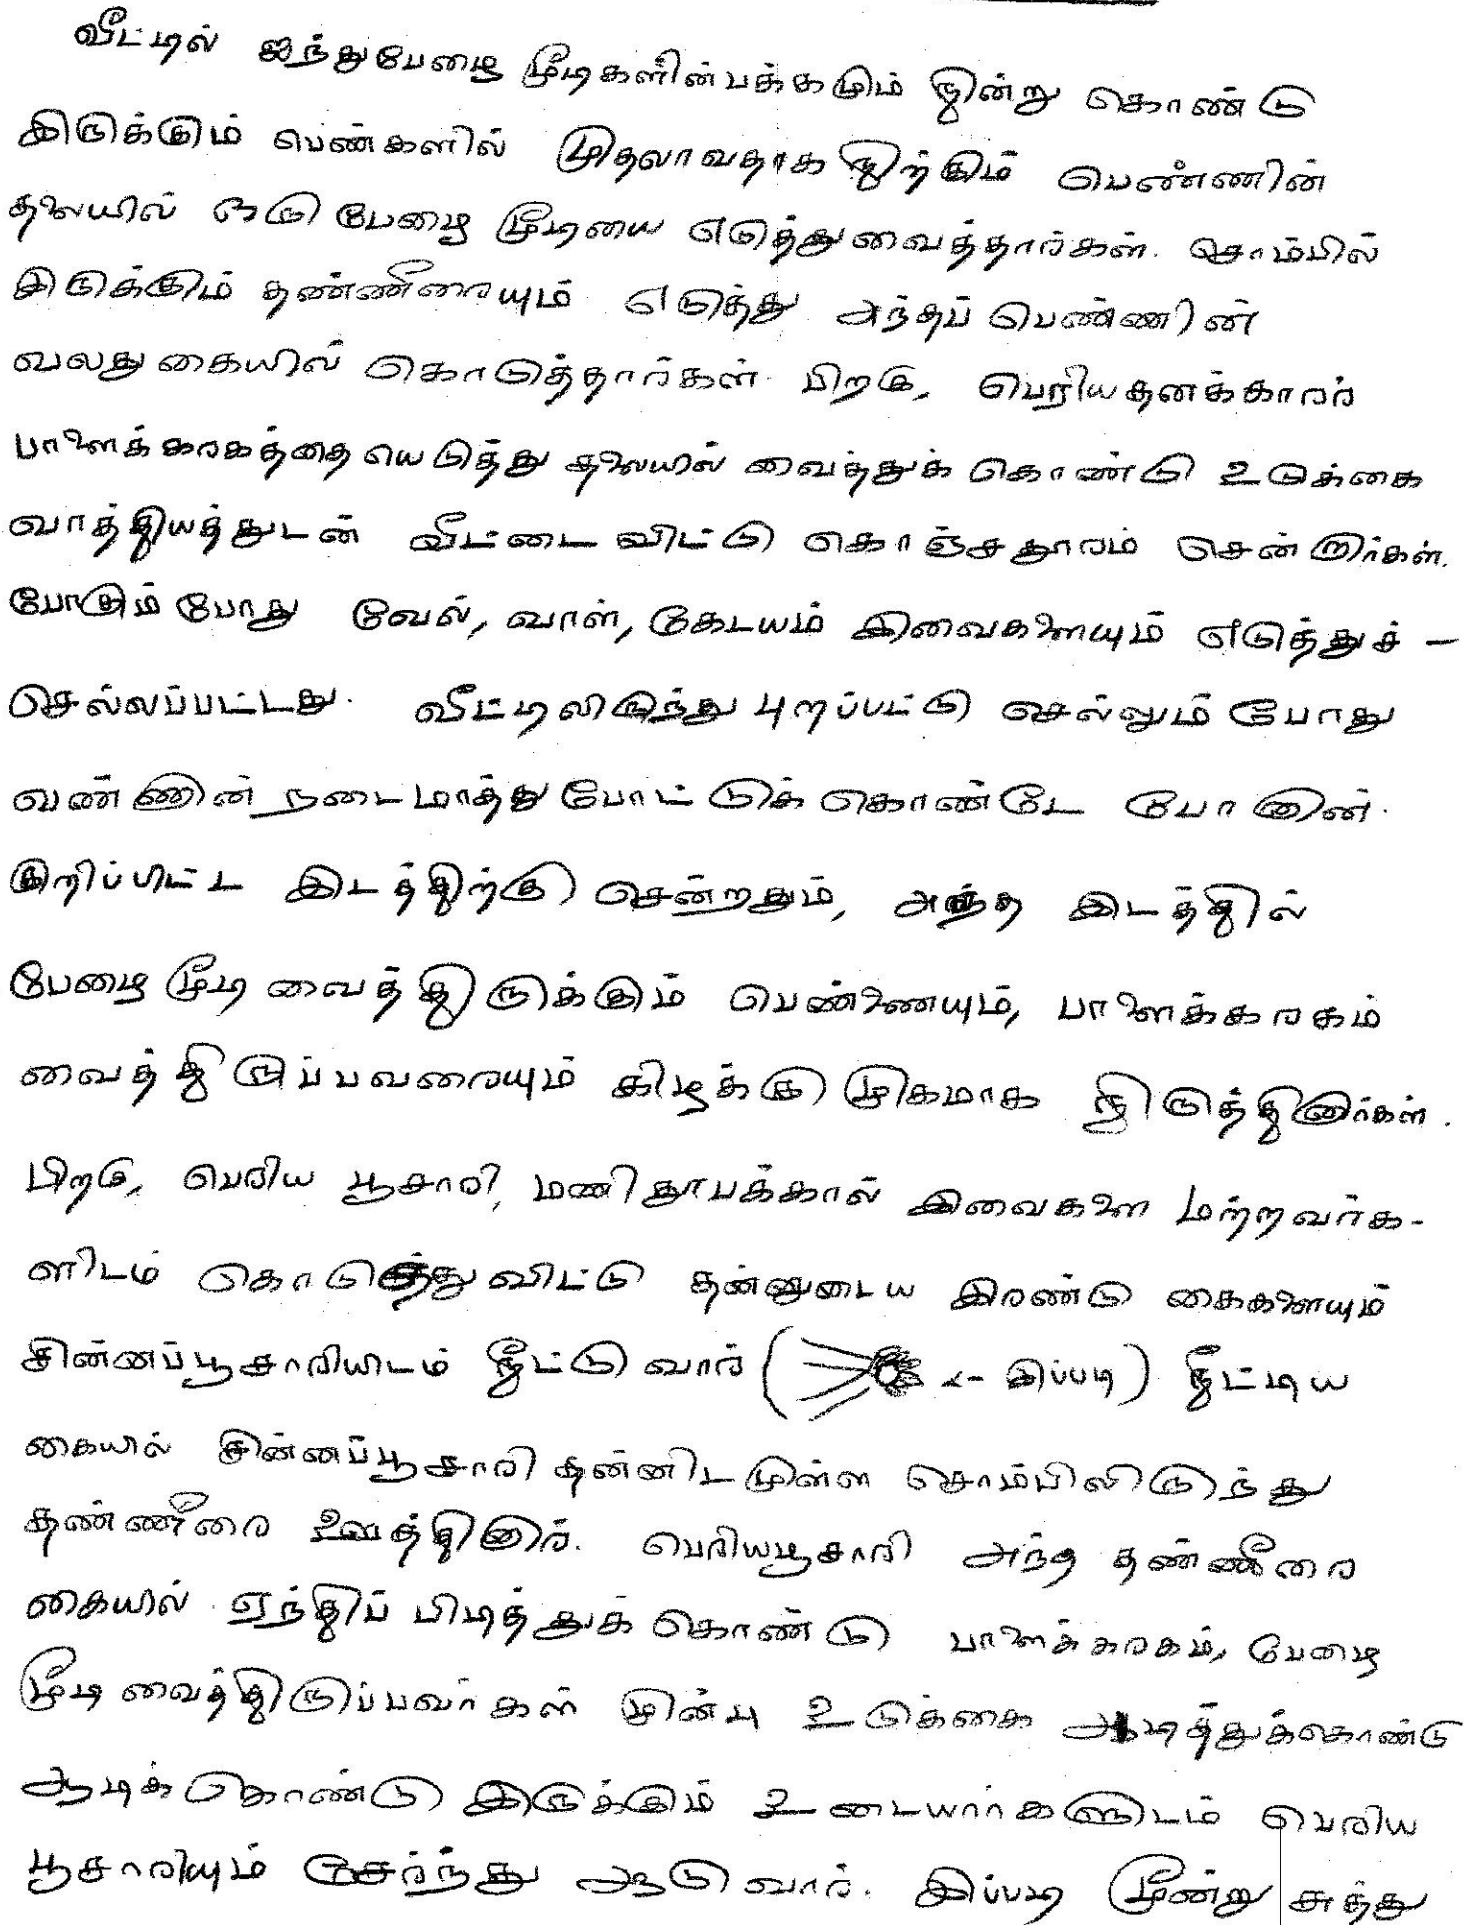 வீட்டில் ஐந்துபேழை மூடிகளின்பக்கமும் நின்று கொண்டு
இருக்கும் பெண்களில் முதலாவதாக நிற்கும் பெண்ணின்
தலையில் ஒரு பேழை மூடியை எடுத்துவைத்தார்கள். சொம்பில்
இருக்கும் தண்ணீரையும் எடுத்து அந்தப் பெண்ணின்
வலது கையில் கொடுத்தார்கள். பிறகு, பெரியதனக்காரர்
பாளைக்கரகத்தை யெடுத்து தலையில் வைத்துக் கொண்டு உடுக்கை
வாத்தியத்துடன் வீட்டை விட்டு கொஞ்சதூரம் சென்றார்கள்.
போகும் போது வேல், வாள், கேடயம் இவைகளையும் எடுத்துச் -
செல்லப்பட்டது. வீட்டிலிருந்து புறப்பட்டு செல்லும் போது
வண்ணான் நடைமாத்து போட்டுக் கொண்டே போனான்.
குறிப்பிட்ட இடத்திற்கு சென்றதும், அந்த இடத்தில்
பேழை மூடி வைத்திருக்கும் பெண்ணையும், பாளைக்கரகம்
வைத்திருப்பவரையும் கிழக்கு முகமாக நிறுத்தினார்கள்.
பிறகு, பெரிய பூசாரி, மணி தூபக்கால் இவைகளை மற்றவர்க-
ளிடம் கொடுத்து விட்டு தன்னுடைய இரண்டு கைகளையும்
சின்னப்பூசாரியிடம் நீட்டு வார் ( <- இப்படி) நீட்டிய
கையில் சின்னப்பூசாரி தன்னிடமுள்ள சொம்பிலிருந்து
தண்ணீரை ஊத்தினார். பெரியபூசாரி அந்த தண்ணீரை
கையில் ஏந்திப் பிடித்துக் கொண்டு பாளைக்கரகம், பேழை
மூடி வைத்திருப்பவர்கள் முன்பு உடுக்கை அடித்துக்கொண்டு
ஆடிக் கொண்டு இருக்கும் உடையார்களுடம் பெரிய
பூசாரியும் சேர்ந்து ஆடுவார். இப்படி மூன்று சுத்து